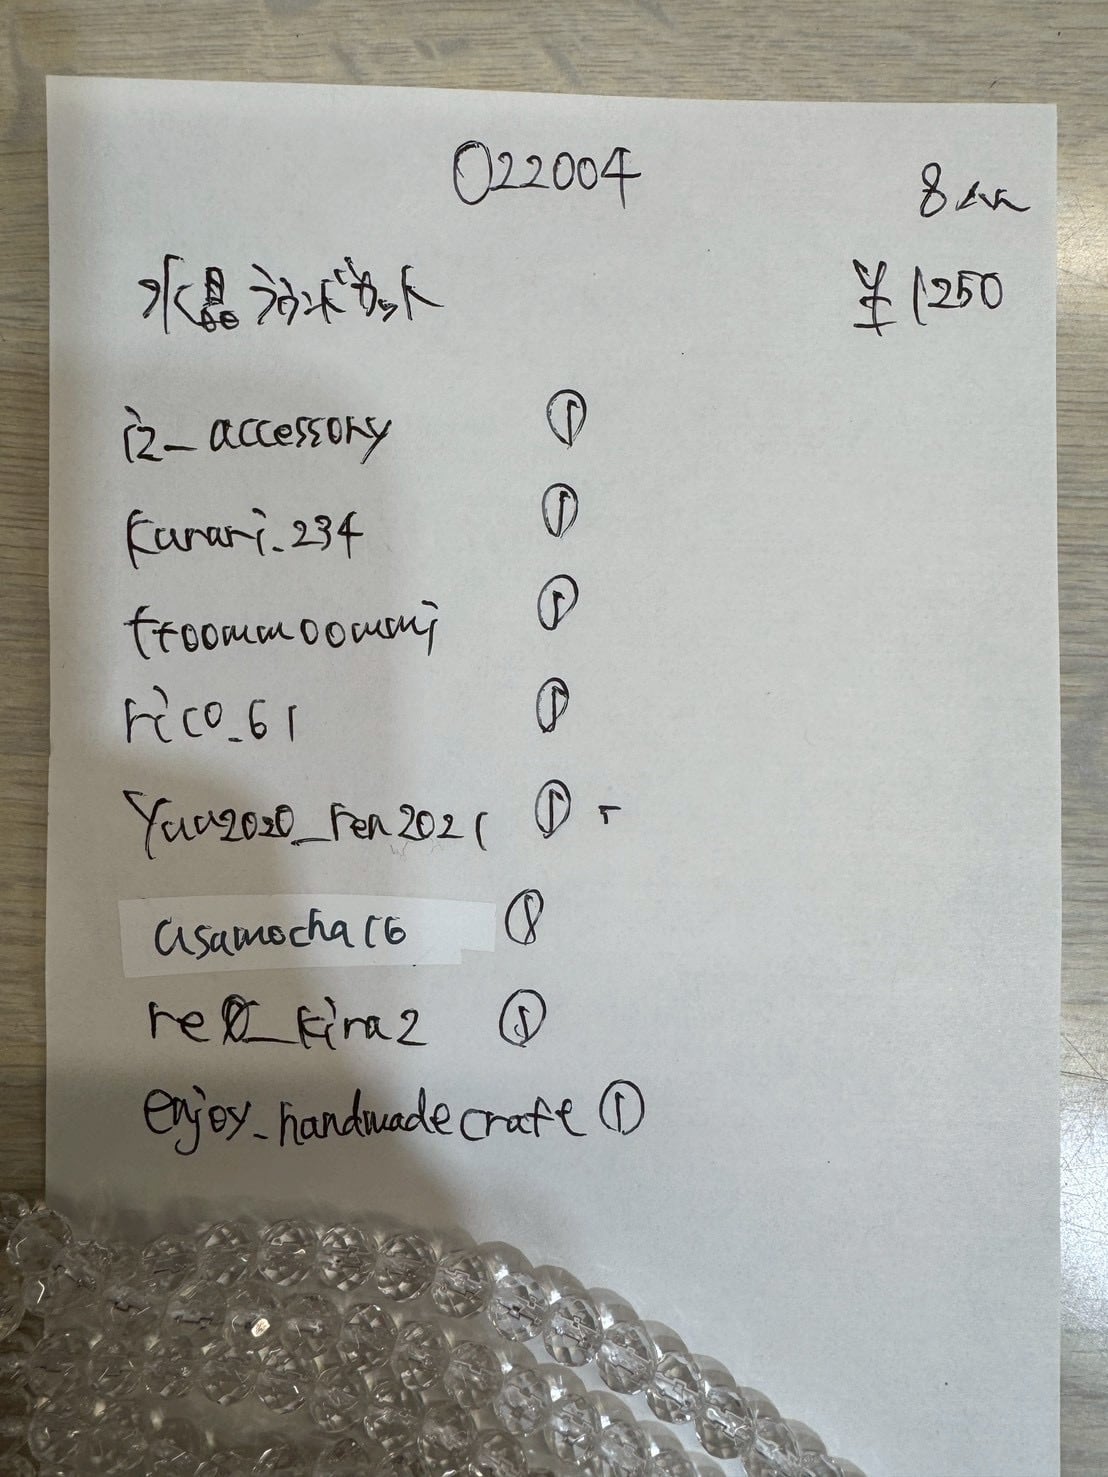 022004
8mm
水晶 ラボ゛カット ¥1250
iz_accessory ①
Kurari_234 ①
ttoommoommi ①
rico_61 ①
Yuu2020_ren2021 ①
asamocha16 ①
re_kira2 ①
enjoy_handmadecraft ①